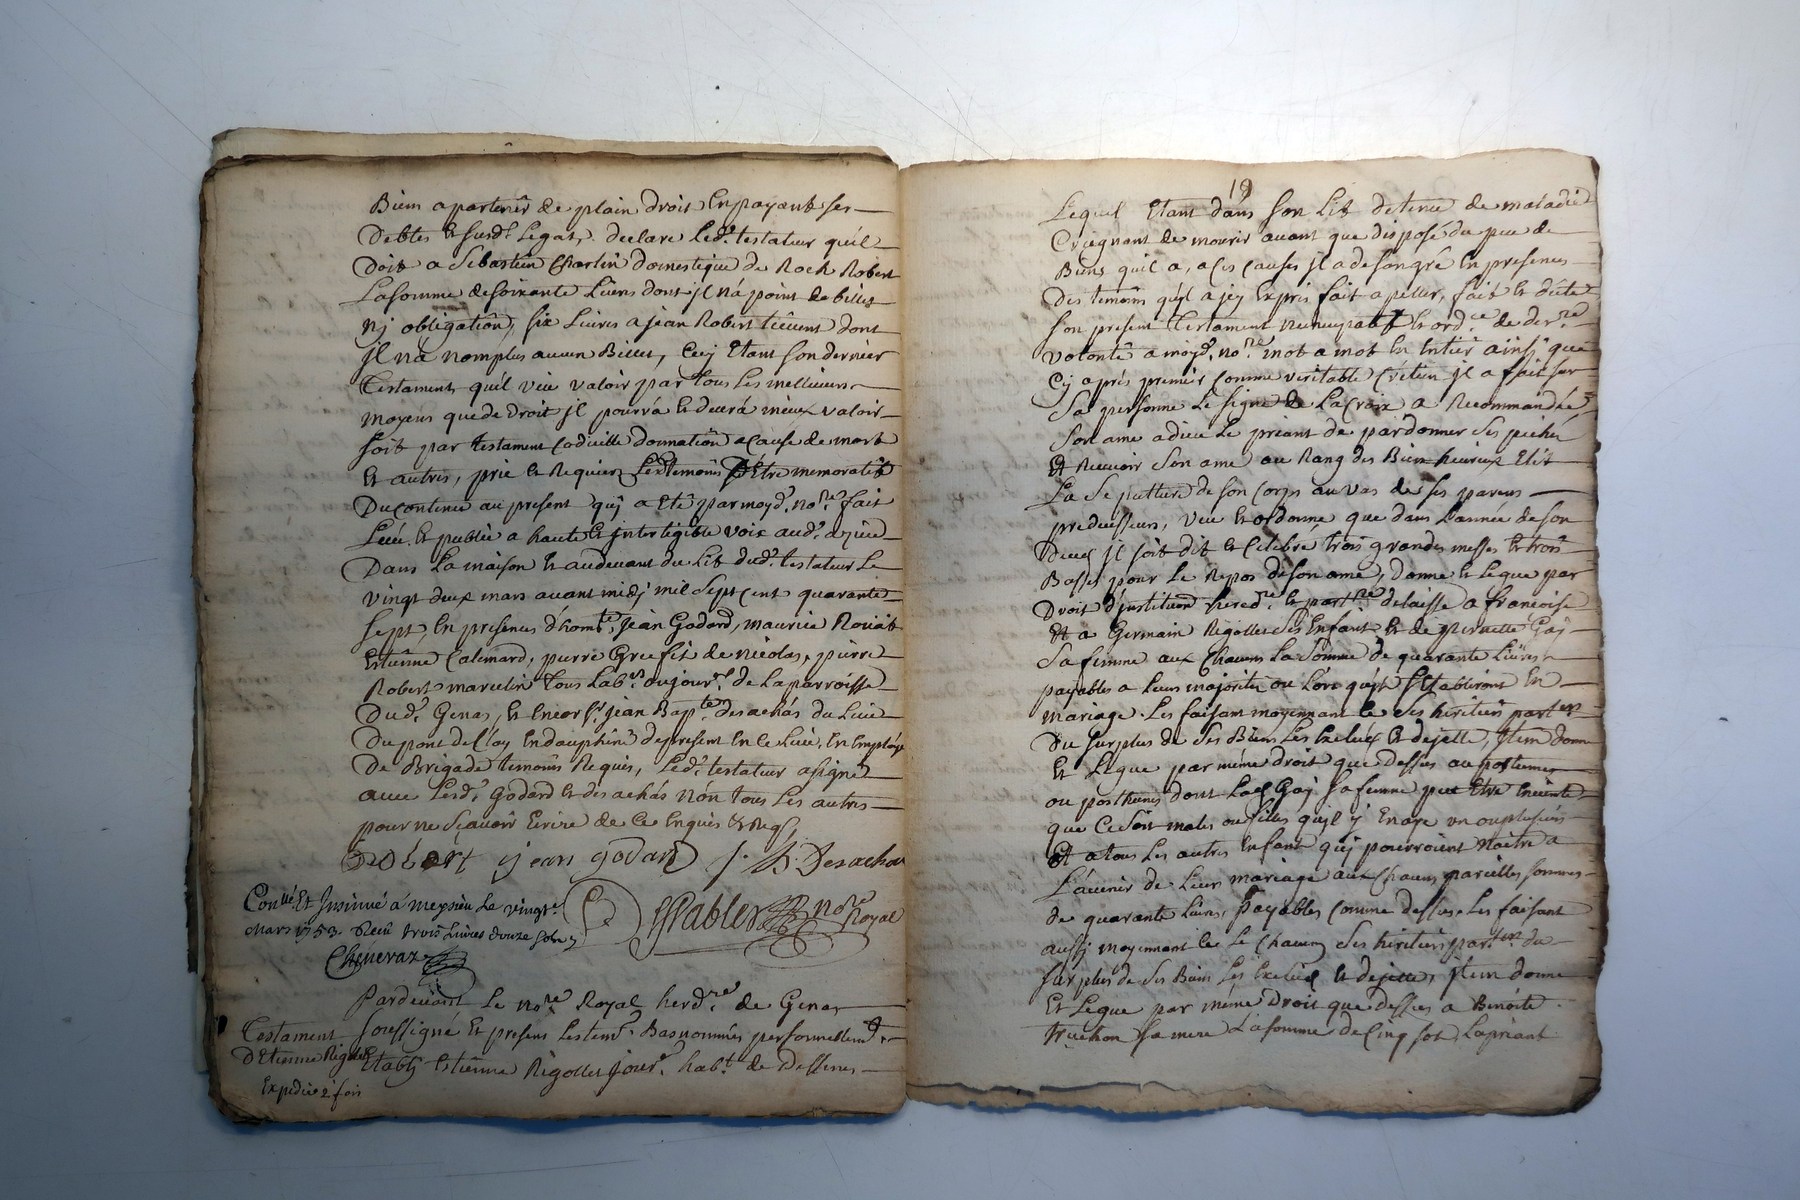 Biens apartenir de plain droit En payant ses
Debtes Et susd.t Legats, declare led.t testateur quil
Doit a Sebastien Charlin domestique de Roch Robert
La somme de soixante Livres dont jl n'a point de billet
Nj obligation, six Livres a jean Robert dont
jl na nomplus aucun Billet, Cecy Etant son dernier
Testament quil veut valoir par tous Les meilleurs
moyens que de Droit jl pourra Et devra mieux valoir
soit par testament Codicille donnation a cause de mort
Et autres, prie Et Requiert Lesd. temoins D'Etre memoratif
Du contenu au present quj a Eté par moyd. no.re fait
Leu Et publié a haute Et jntelligible voix aud.
Dans La maison Et audevant du Lit dud. testateur Le
vingt deux mars avant midj mil Sept Cent quarante
sept, En presence d'hon.te jean Godard, maurice
Estienne Calemard, pierre Greffit de Nicolas, pierre
Robert marcelin tous Lab.rs ou jour.rs de La parroisse
Dud. Genas, Et Encor S.r jean Bap.te desachás du Lieu
Du pont de En dauphiné depresent En ce Lieu, En Employé
De Brigade temoins Requis, Led. testateur a signé
avec Lesd. Godard Et desachás Non tous Les autres
pour ne Sçavoir Ecrire de ce Enquis & Reqs,
Robert jean godard J. B. Desachas
Con.llé Et Jnsinué á meysieu Le vingt
Mars 1753. Recu trois Livres douze sols
Pablet no.re Royal
Chenevaz
Pardevant Le no.re Royal hered.re de Genas
Testament soussigné Et presens Les tem. Basnommés personnellem.t
D'Etienne Rigollet Etablj Estienne Rigollet jour. hab.t de Dessenes
Expedié 2 fois
19
Lequel Etant dans son Lit detenu de maladie
Craignant de mourir avant que disposé du peu de
Biens quil a, a ces Causes jl a de son gré En presences
Des temoins quil a jcy Expres fait apeller, fait Et dicté
son present Testament Nuncupatif Et ord.ce de der.re
volonté a moyd. no.re mot a mot En Entier ainsj que
Cy aprés premier Comme veritable Crétien jl a fait sur
Sa personne Le signe de La Croix a Recommandée
Son ame a dieu Le priant de pardonner Ses pechés
Et Recevoir Son ame au Rang des Bien heureux Elit
La Sepulture de son Corps au vas de ses parens
predecesseurs, veut Et ordonne que dans L'année de son
Deces jl soit dit Et Celebré trois grandes messes Et trois
Basses pour Le Repos de son ame, donne Et Legue par
Droit d'jnstitution hered.re Et part.re delaisse a francoise
Et a Germain Rigollet ses Enfans Et de pernette Gaj
Sa femme aux Chacuns La Somme de quarante Livres
payables a Leurs majorités ou Lors quils s'Etabliront En
mariage. Les faisant moyennant Ce Ses heritiers part.ers
Du surplus de Ses Biens Les Exclud Et dejette, Jtem donne
Et Legue par méme droit que dessus au postume
ou posthumes dont Lad. Gaj sa femme peut Etre Enceinte
que Ce Soit males ou filles quil y En aye un ou plusieurs
Et a tous Les autres Enfans quj pourroient Naitre a
L'avenir de Leur mariage aux Chacuns pareilles sommes
de quarante Livres, payables Comme dessus. Les faisant
aussj moyennant Ce Le Chacun Ses heritiers part.ers du
surplus de Ses Biens Les Exclud Et dejette, Jtem donne
Et Legue par méme Droit que dessus a Benoite
truchon Sa mere La somme de Cinq sols Lapriant